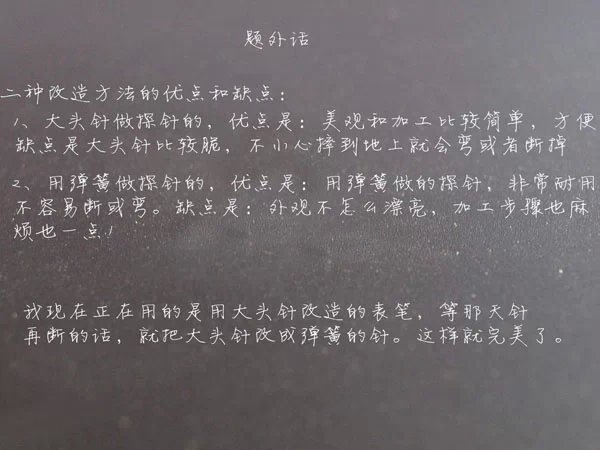 题外话
二种改造方法的优点和缺点：
1、大头针做探针的，优点是：美观和加工比较简单，方便
缺点是大头针比较脆，不小心摔到地上就会弯或者断掉
2、用弹簧做探针的，优点是：用弹簧做的探针，非常耐用
不容易断或弯。缺点是：外观不怎么漂亮，加工步骤也麻
烦也一点！
我现在正在用的是用大头针改造的表笔，等那天针
再断的话，就把大头针改成弹簧的针。这样就完美了。